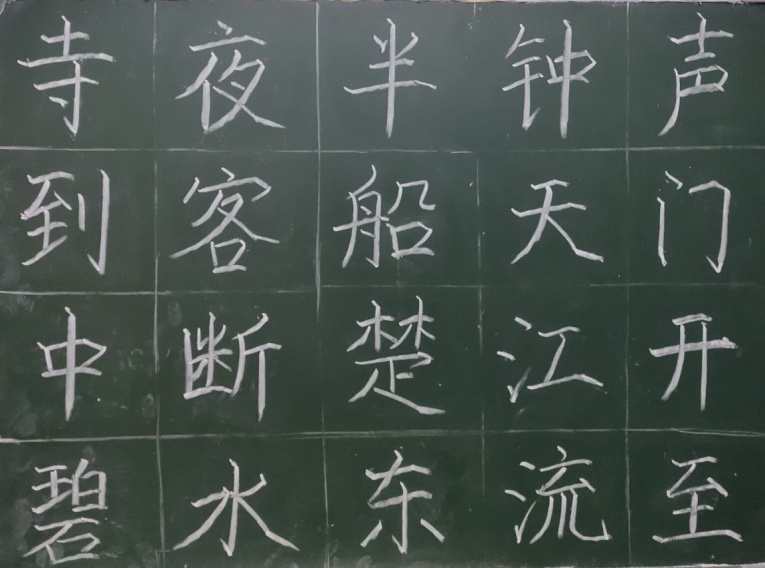 寺夜半钟声
到客船天门
中断楚江开
碧水东流至